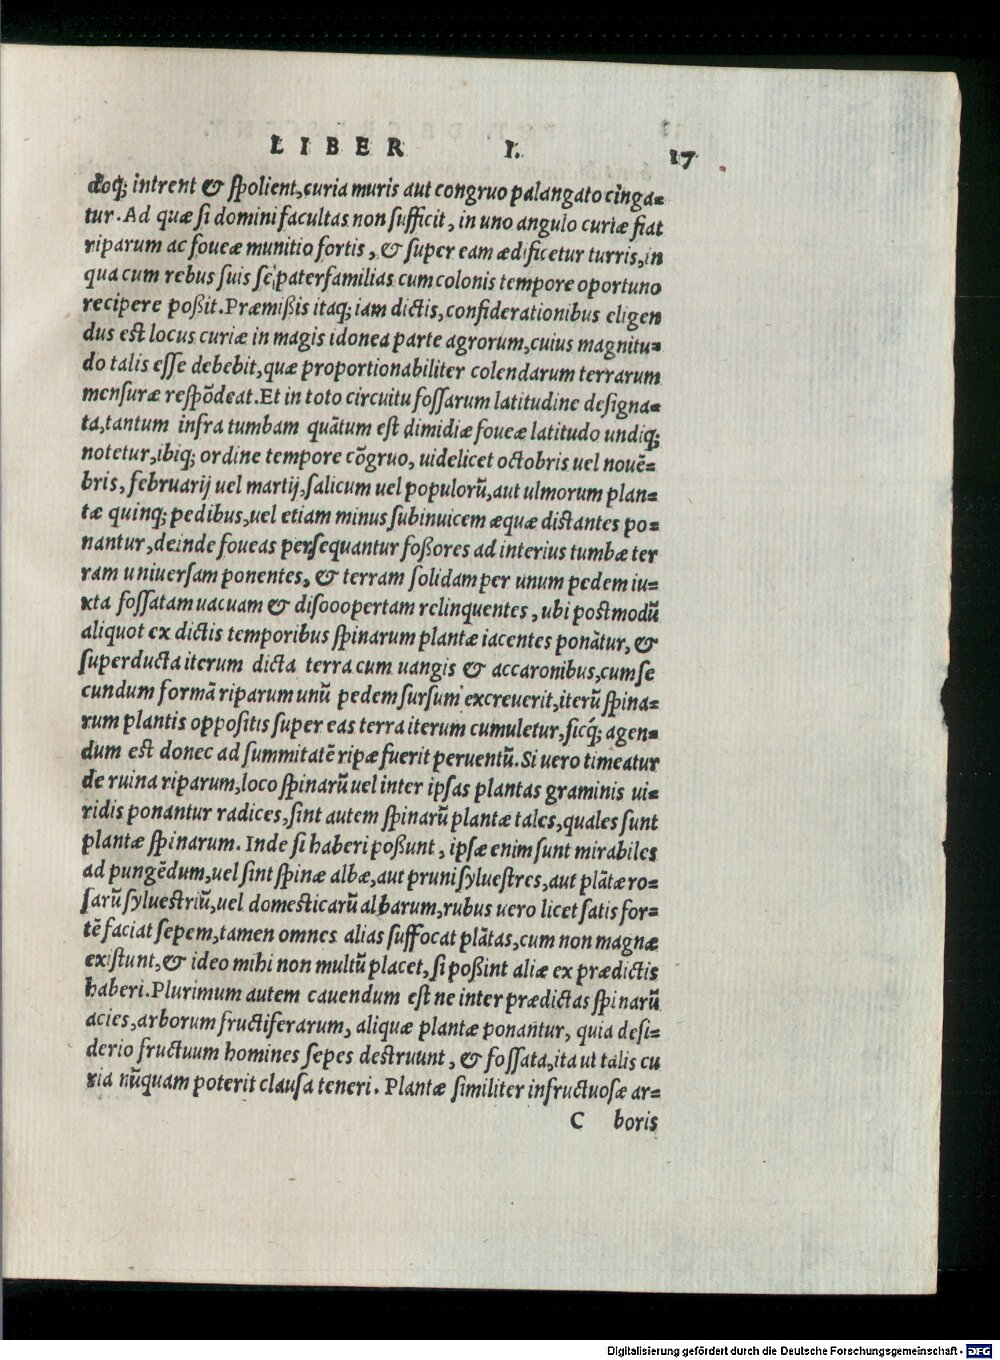 LIBER I. 17
doq; intrent & spolient, curia muris aut congruo palangato cinga=
tur. Ad quæ si domini facultas non sufficit, in uno angulo curiæ fiat
riparum ac foueæ munitio fortis, & super eam ædificetur turris, in
qua cum rebus suis se paterfamilias cum colonis tempore oportuno
recipere poßit. Præmißis itaq; iam dictis, considerationibus eligen
dus est locus curiæ in magis idonea parte agrorum, cuius magnitu=
do talis esse debebit, quæ proportionabiliter colendarum terrarum
mensuræ respõdeat. Et in toto circuitu fossarum latitudine designa=
ta, tantum infra tumbam quãtum est dimidiæ foueæ latitudo undiq;
notetur, ibiq; ordine tempore cõgruo, uidelicet octobris uel nouẽ=
bris, februarij uel martij, salicum uel populorũ, aut ulmorum plan=
tæ quinq; pedibus, uel etiam minus subinuicem æquæ distantes po=
nantur, deinde foueas persequantur foßores ad interius tumbæ ter
ram uniuersam ponentes, & terram solidam per unum pedem iu=
xta fossatam uacuam & disooopertam relinquentes, ubi postmodũ
aliquot ex dictis temporibus spinarum plantæ iacentes ponãtur, &
superducta iterum dicta terra cum uangis & accaronibus, cum se
cundum formã riparum unũ pedem sursum excreuerit, iterũ spina=
rum plantis oppositis super eas terra iterum cumuletur, sicq́; agen=
dum est donec ad summitatẽ ripæ fuerit peruentũ. Si uero timeatur
de ruina riparum, loco spinarũ uel inter ipsas plantas graminis ui=
ridis ponantur radices, sint autem spinarũ plantæ tales, quales sunt
plantæ spinarum. Inde si haberi poßunt, ipsæ enim sunt mirabiles
ad pungẽdum, uel sint spinæ albæ, aut pruni syluestres, aut plãtæ ro=
sarũ syluestriũ, uel domesticarũ albarum, rubus uero licet satis for=
tẽ faciat sepem, tamen omnes alias suffocat plãtas, cum non magnæ
existunt, & ideo mihi non multũ placet, si poßint aliæ ex prædictis
haberi. Plurimum autem cauendum est ne inter prædictas spinarũ
acies, arborum fructiferarum, aliquæ plantæ ponantur, quia desi=
derio fructuum homines sepes destruunt, & fossata, ita ut talis cu
ria nũquam poterit clausa teneri. Plantæ similiter infructuosæ ar=
C boris
Digitalisierung gefördert durch die Deutsche Forschungsgemeinschaft - DFG